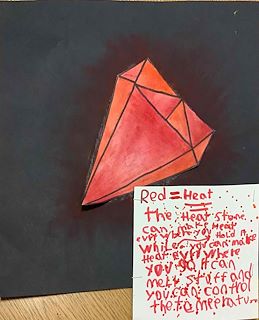 Red = Heat
The Heat Stone
can make Heat
everywhere you Hold it
While you can make
Heat everywhere
you go it can
melt stuff and
you can control
the